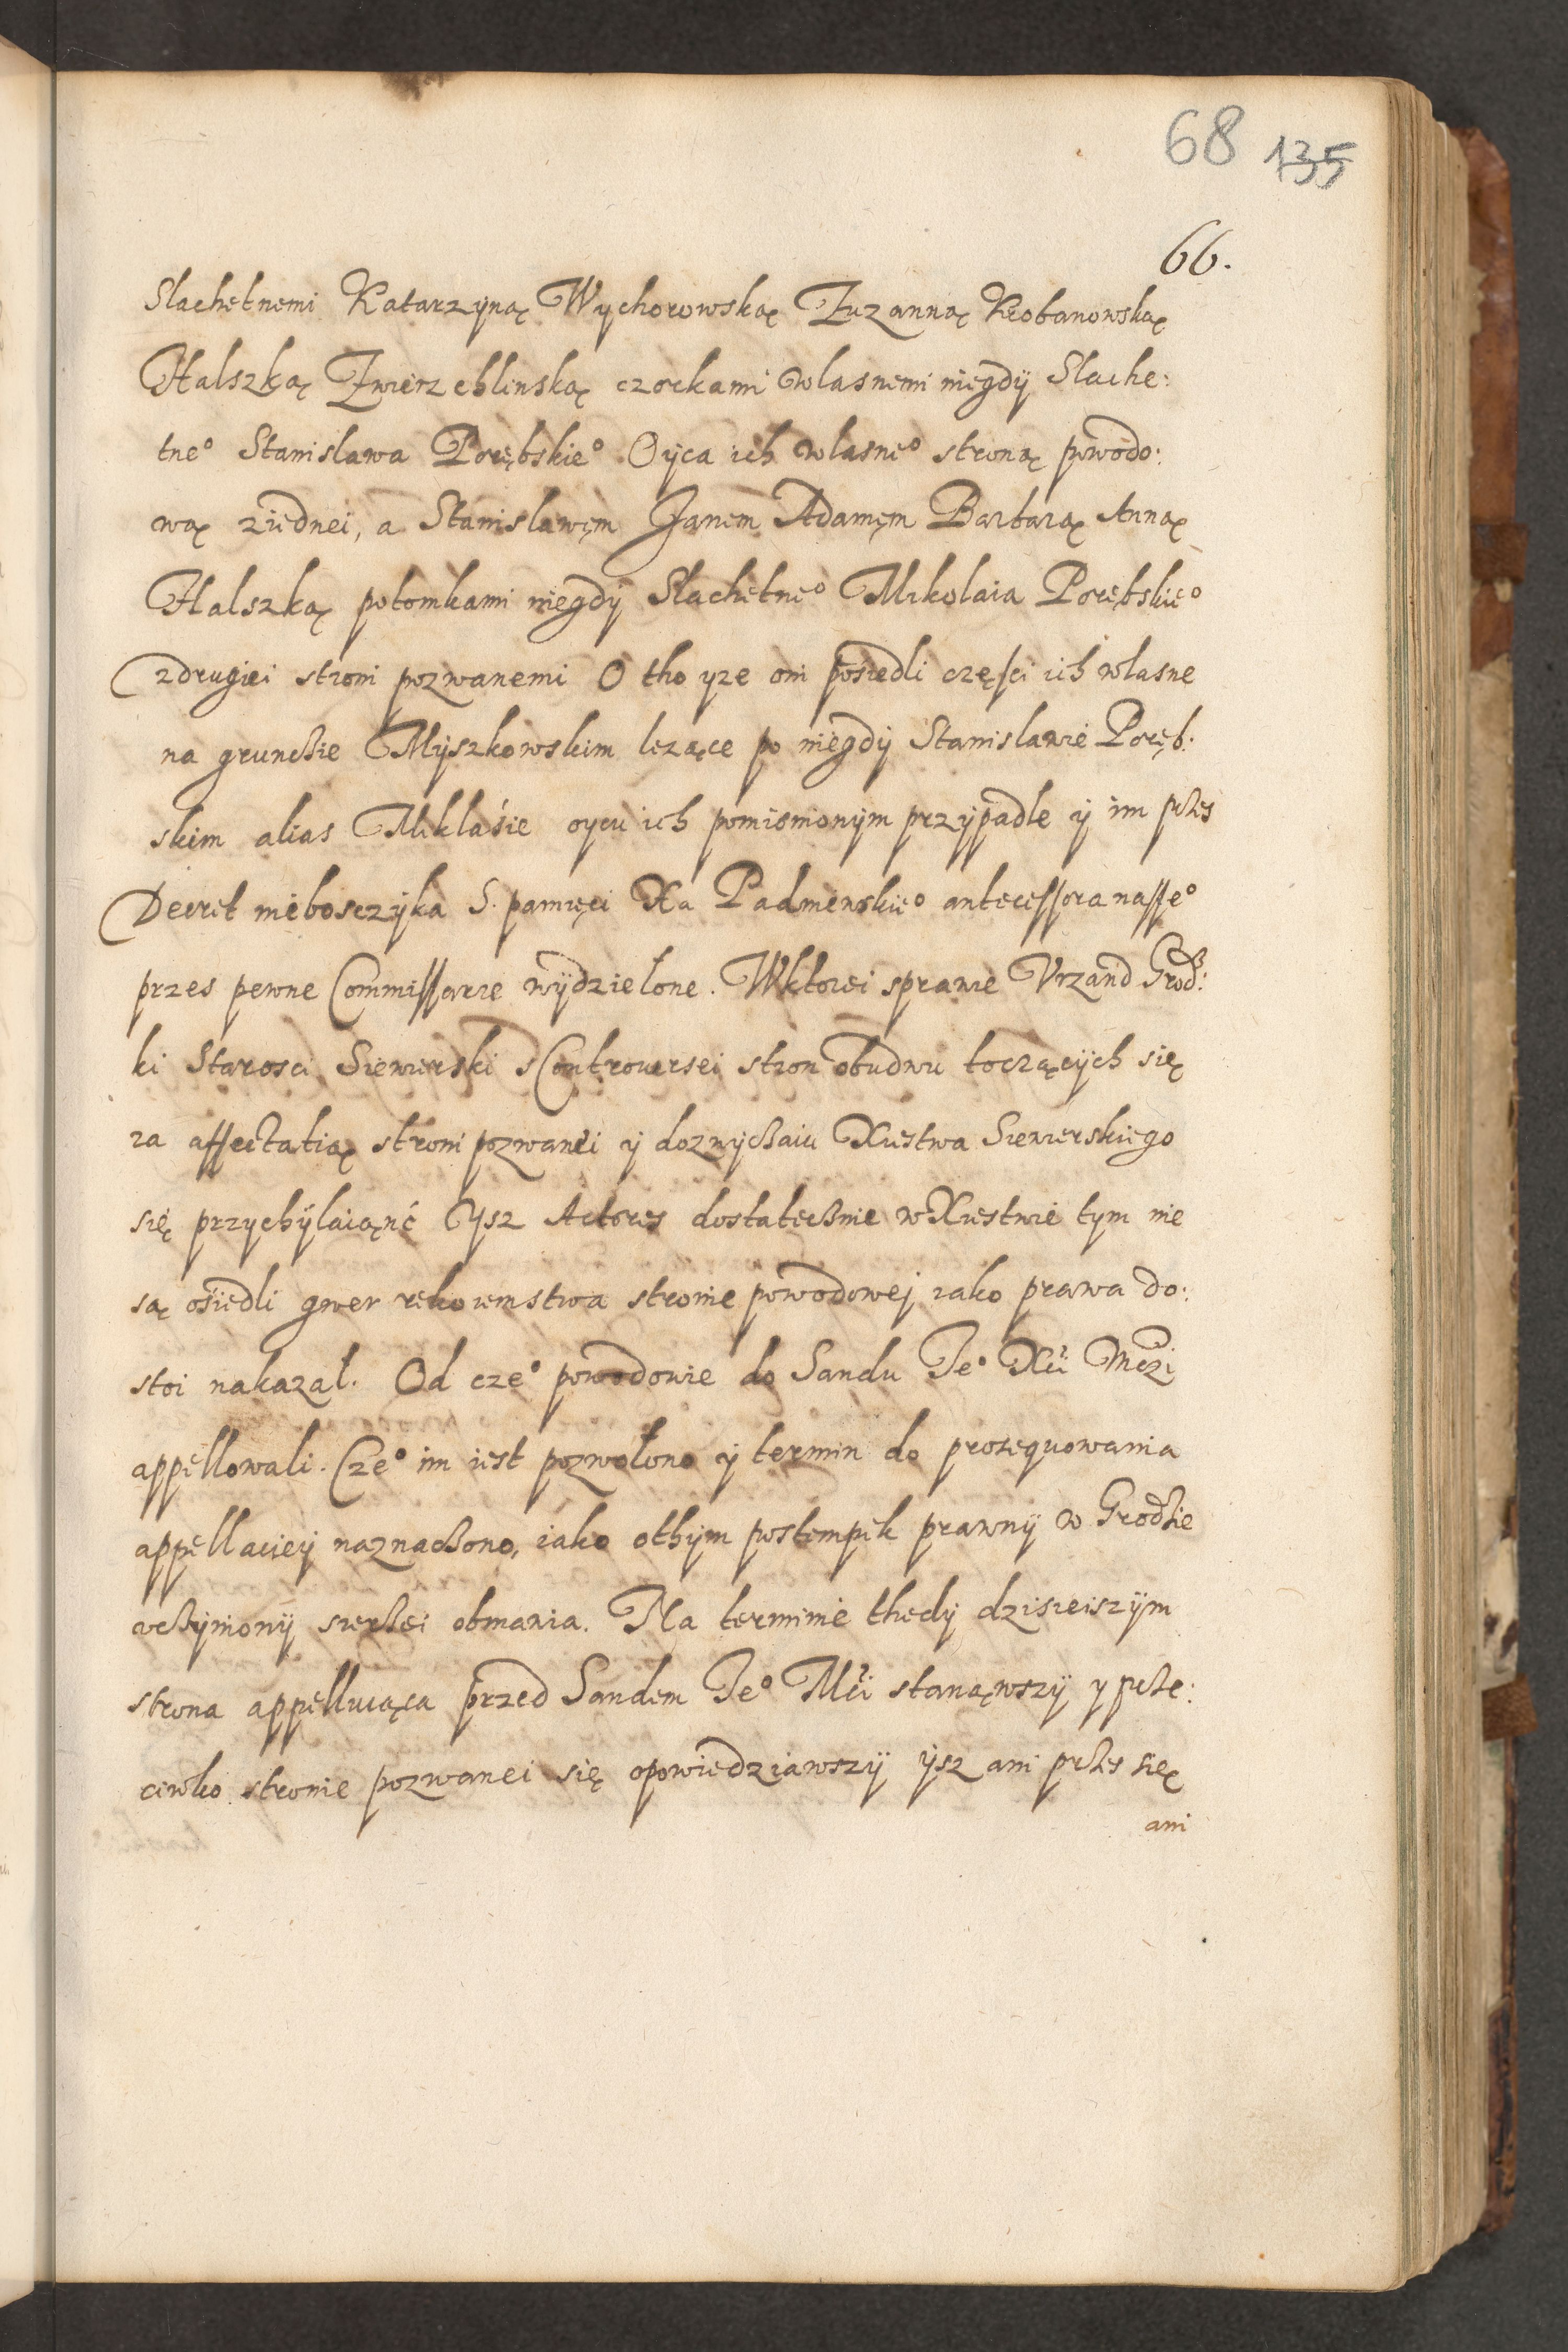 68 135
66.
Slachetnemi Katarzyną Wychorowską Zuzanną Krobanowską
Halszką Zwierzchlinską czorkami wlasnemi niegdÿ Slache:
tne° Stanislawa Porębskie° Oÿca ich wlasne° stroną powodo:
wą ziednei, a Stanislawęm Janem Adamęm Barbarą Anną
Halszką potomkami niegdÿ Slachetne° Mikolaia Porębskie°
zdrugiei stroni pozwanemi O tho yze oni posiedli części ich wlasne
na grunchie Mÿszkowskim lezące po niegdÿ Stanislawie Poręb:
skim alias Miklaśie oycu ich pomienionÿm przÿpadle ÿ im przes
Decret niebosczÿka S. pamięci Xa Padniewskie° antecessora nasse°
przes pewne Commissarze wÿdzielone. Wktorei sprawie Vrzand Grodz:
ki Starosci Siewierski sControuersei stron obudwu toczącÿch się
za affectatią stroni pozwanei ÿ dozwyczaiu Xiestwa Siewierskiego
się przychÿlaiąnć Ysz Actores dostatecznie wXiestwie tym nie
są osiedli gwer rekoiemstwa stronie powodowej iako prawa do:
stoi nakazał. Od cze° powodowie do Sandu Je° Xci Mczi
appellowali. Cze° im iest pozwolono ÿ termin do prosequowania
appellaciey naznaczono, iako othÿm postempek prawnÿ w Grodzie
vczÿnionÿ sierzei obmawia. Na terminie thedÿ dzisieiszÿm
strona appelluiąca przed Sandem Je° Mci stanąwszÿ y prze:
ciwko stronie pozwanei się opowiedziawszÿ ÿsz ani przes się
ani